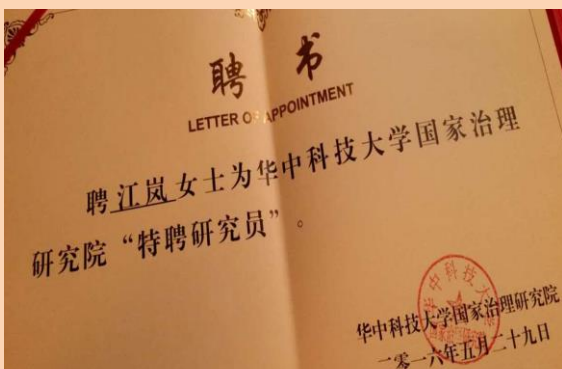 聘 书
LETTER OF APPOINTMENT
聘 江岚 女士为华中科技大学国家治理
研究院“特聘研究员”。
华中科技大学国家治理研究院
二零一六年五月二十九日